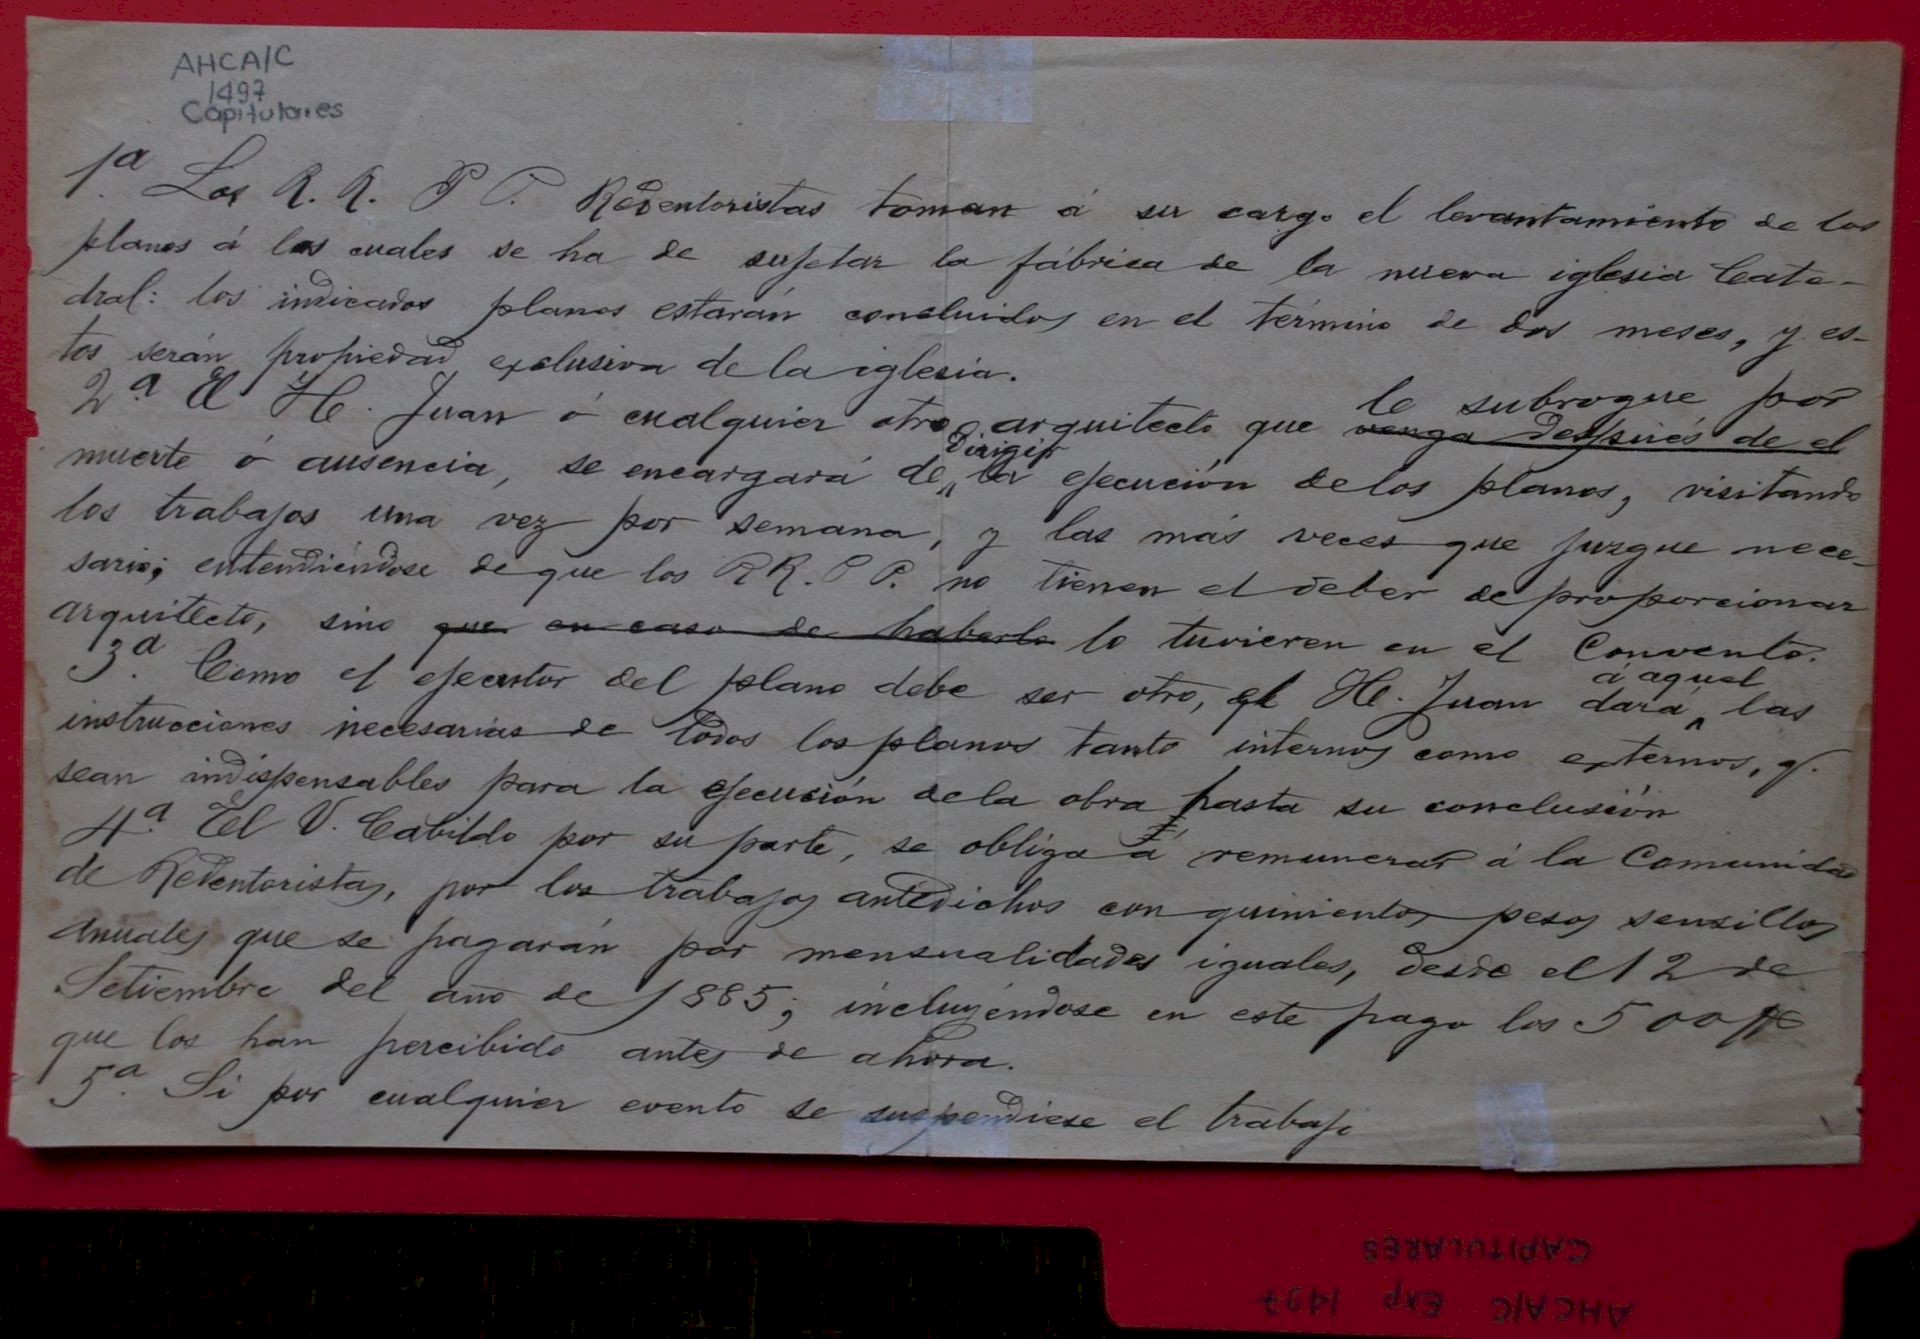 AHCA/C
1497
Capitulares
1ª. Los R. R. P P. Redentoristas toman á su cargo el levantamiento de los
planos á los cuales se ha de sujetar la fábrica de la nueva iglesia Cate-
dral: los indicados planos estarán concluidos en el término de dos meses, y es-
tos serán propiedad exclusiva de la iglesia.
le subrogue por
2ª. El H. Juan ó cualquier otro arquitecto que venga después de el
dirigir
muerte ó ausencia, se encargará de la ejecución de los planos, visitando
los trabajos una vez por semana, y las más veces que juzgue nece-
sario; entendiéndose de que los RR. P P. no tienen el deber de proporcionar
arquitecto, sino que en caso de haberlo lo tuvieren en el Convento.
á aquel
3ª. Como el ejecutor del plano debe ser otro, el H. Juan dará las
instrucciones necesarias de todos los planos tanto internos como externos, q.
sean indispensables para la ejecución de la obra hasta su conclusión
4ª. El V. Cabildo por su parte, se obliga á remunerar á la Comunidad
de Redentoristas, por los trabajos antedichos con quinientos pesos sensillos
anuales que se pagarán por mensualidades iguales, desde el 12 de
Setiembre del año de 1885; incluyéndose en este pago los 500
que los han percibido antes de ahora.
5ª. Si por cualquier evento se suspendiese el trabajo
CAPITULARES
AHCA/C Exp 1497